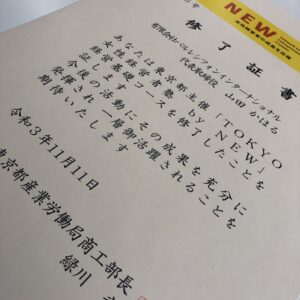 NEW
号
修了証書
有限会社パルレシフォンインターナショナル
代表取締役 山田 かほる
あなたは東京都主催「TOKYO
女性経営者塾 by NEW」
経営基礎コースを修了したことを
証します
今後の活動にその成果を充分に
発揮され一層御活躍されることを
期待いたします
令和3年11月11日
東京都産業労働局商工部長
緑川